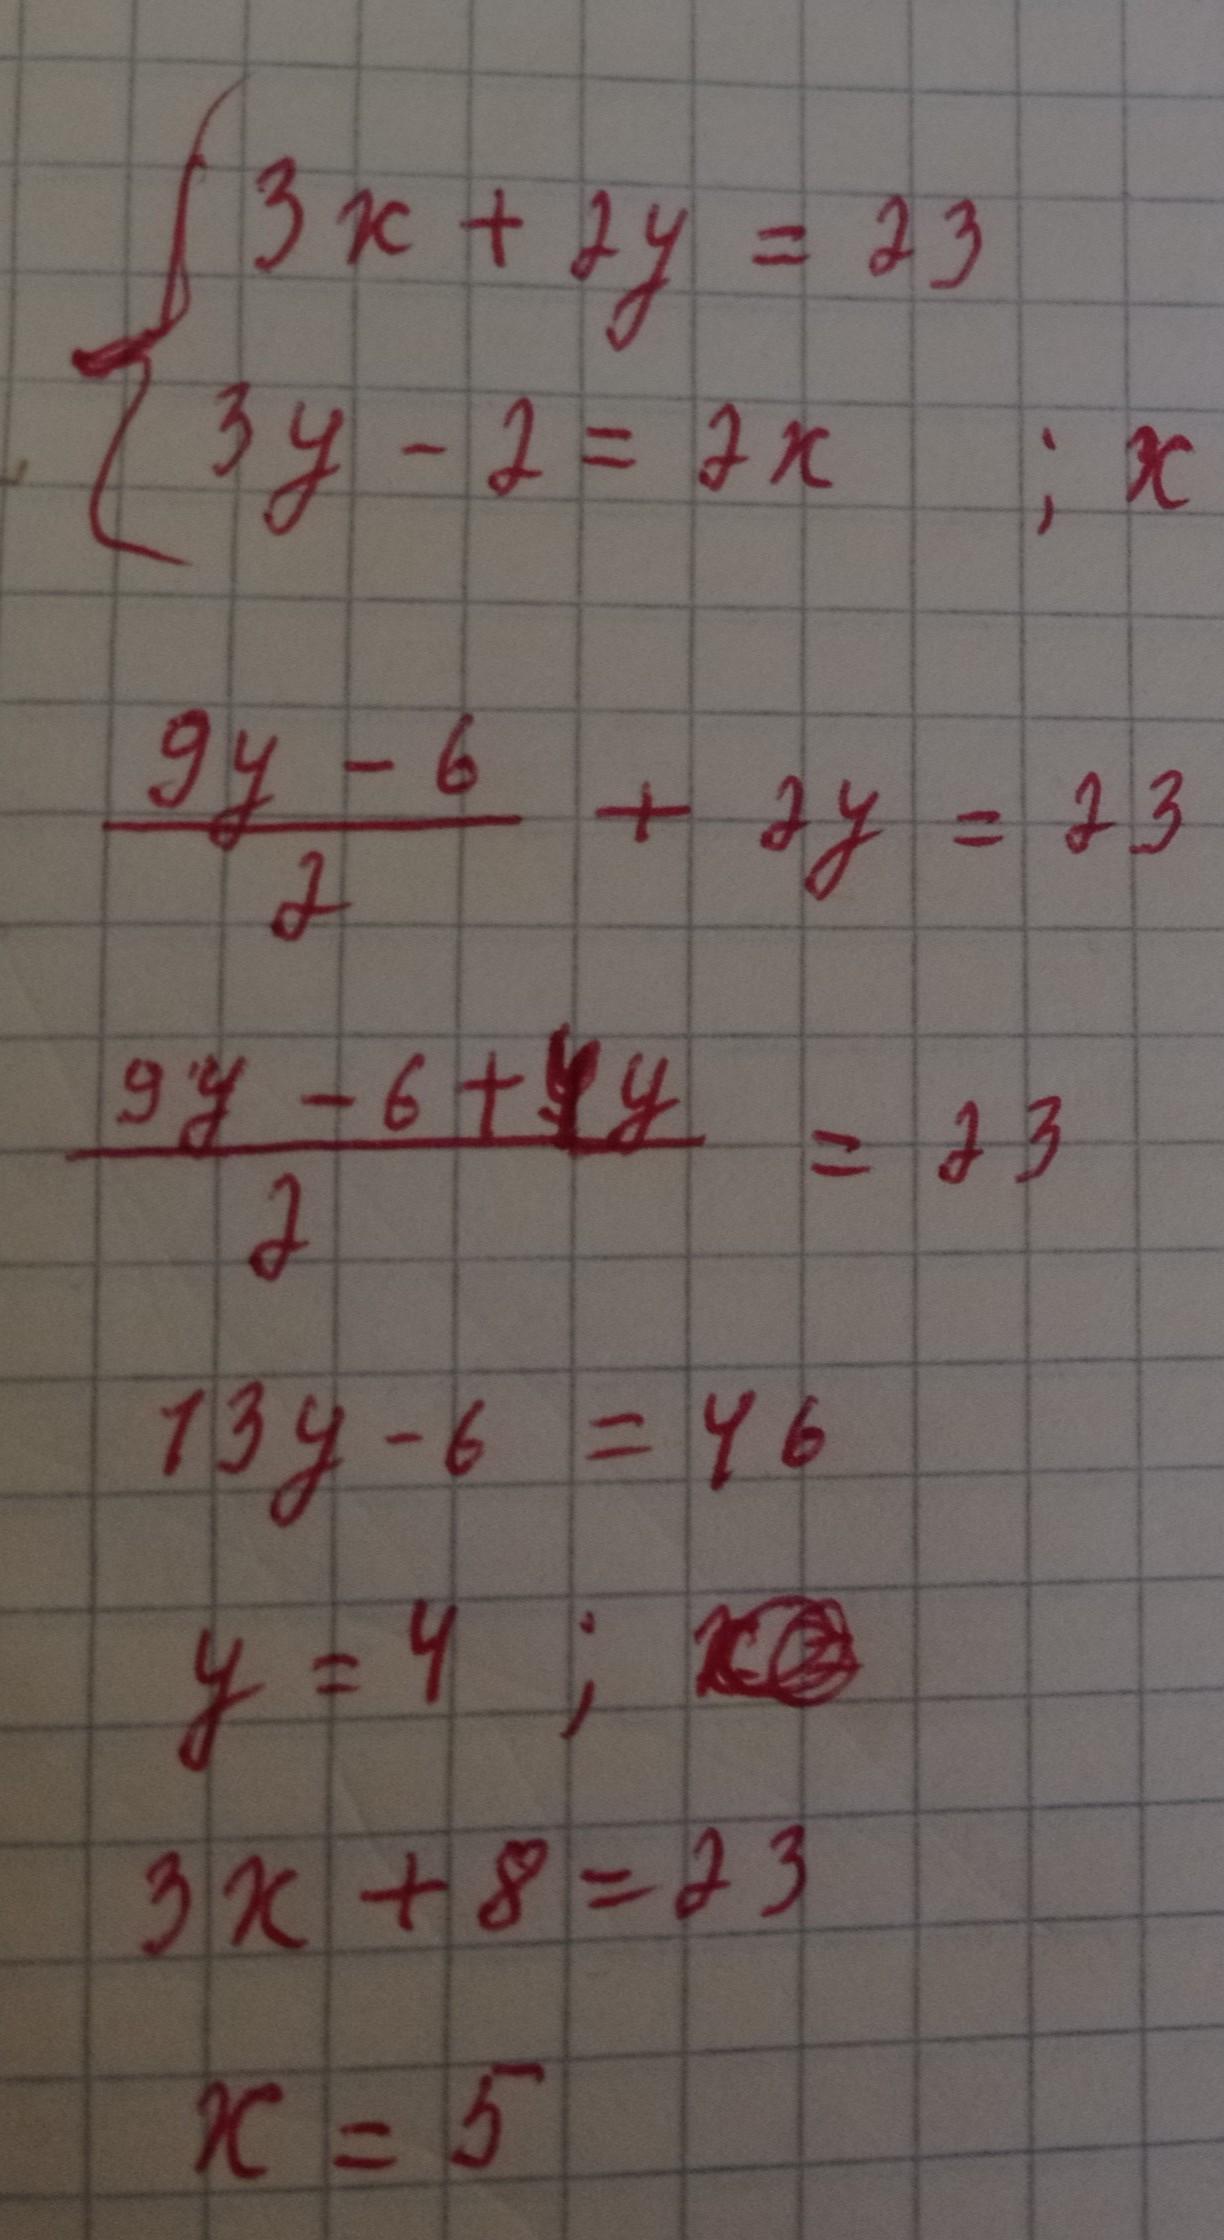 3x + 2y = 23
3y - 2 = 2x ; x
9y - 6 / 2 + 2y = 23
9y - 6 + 4y / 2 = 23
13y - 6 = 46
y = 4 ;
3x + 8 = 23
x = 5